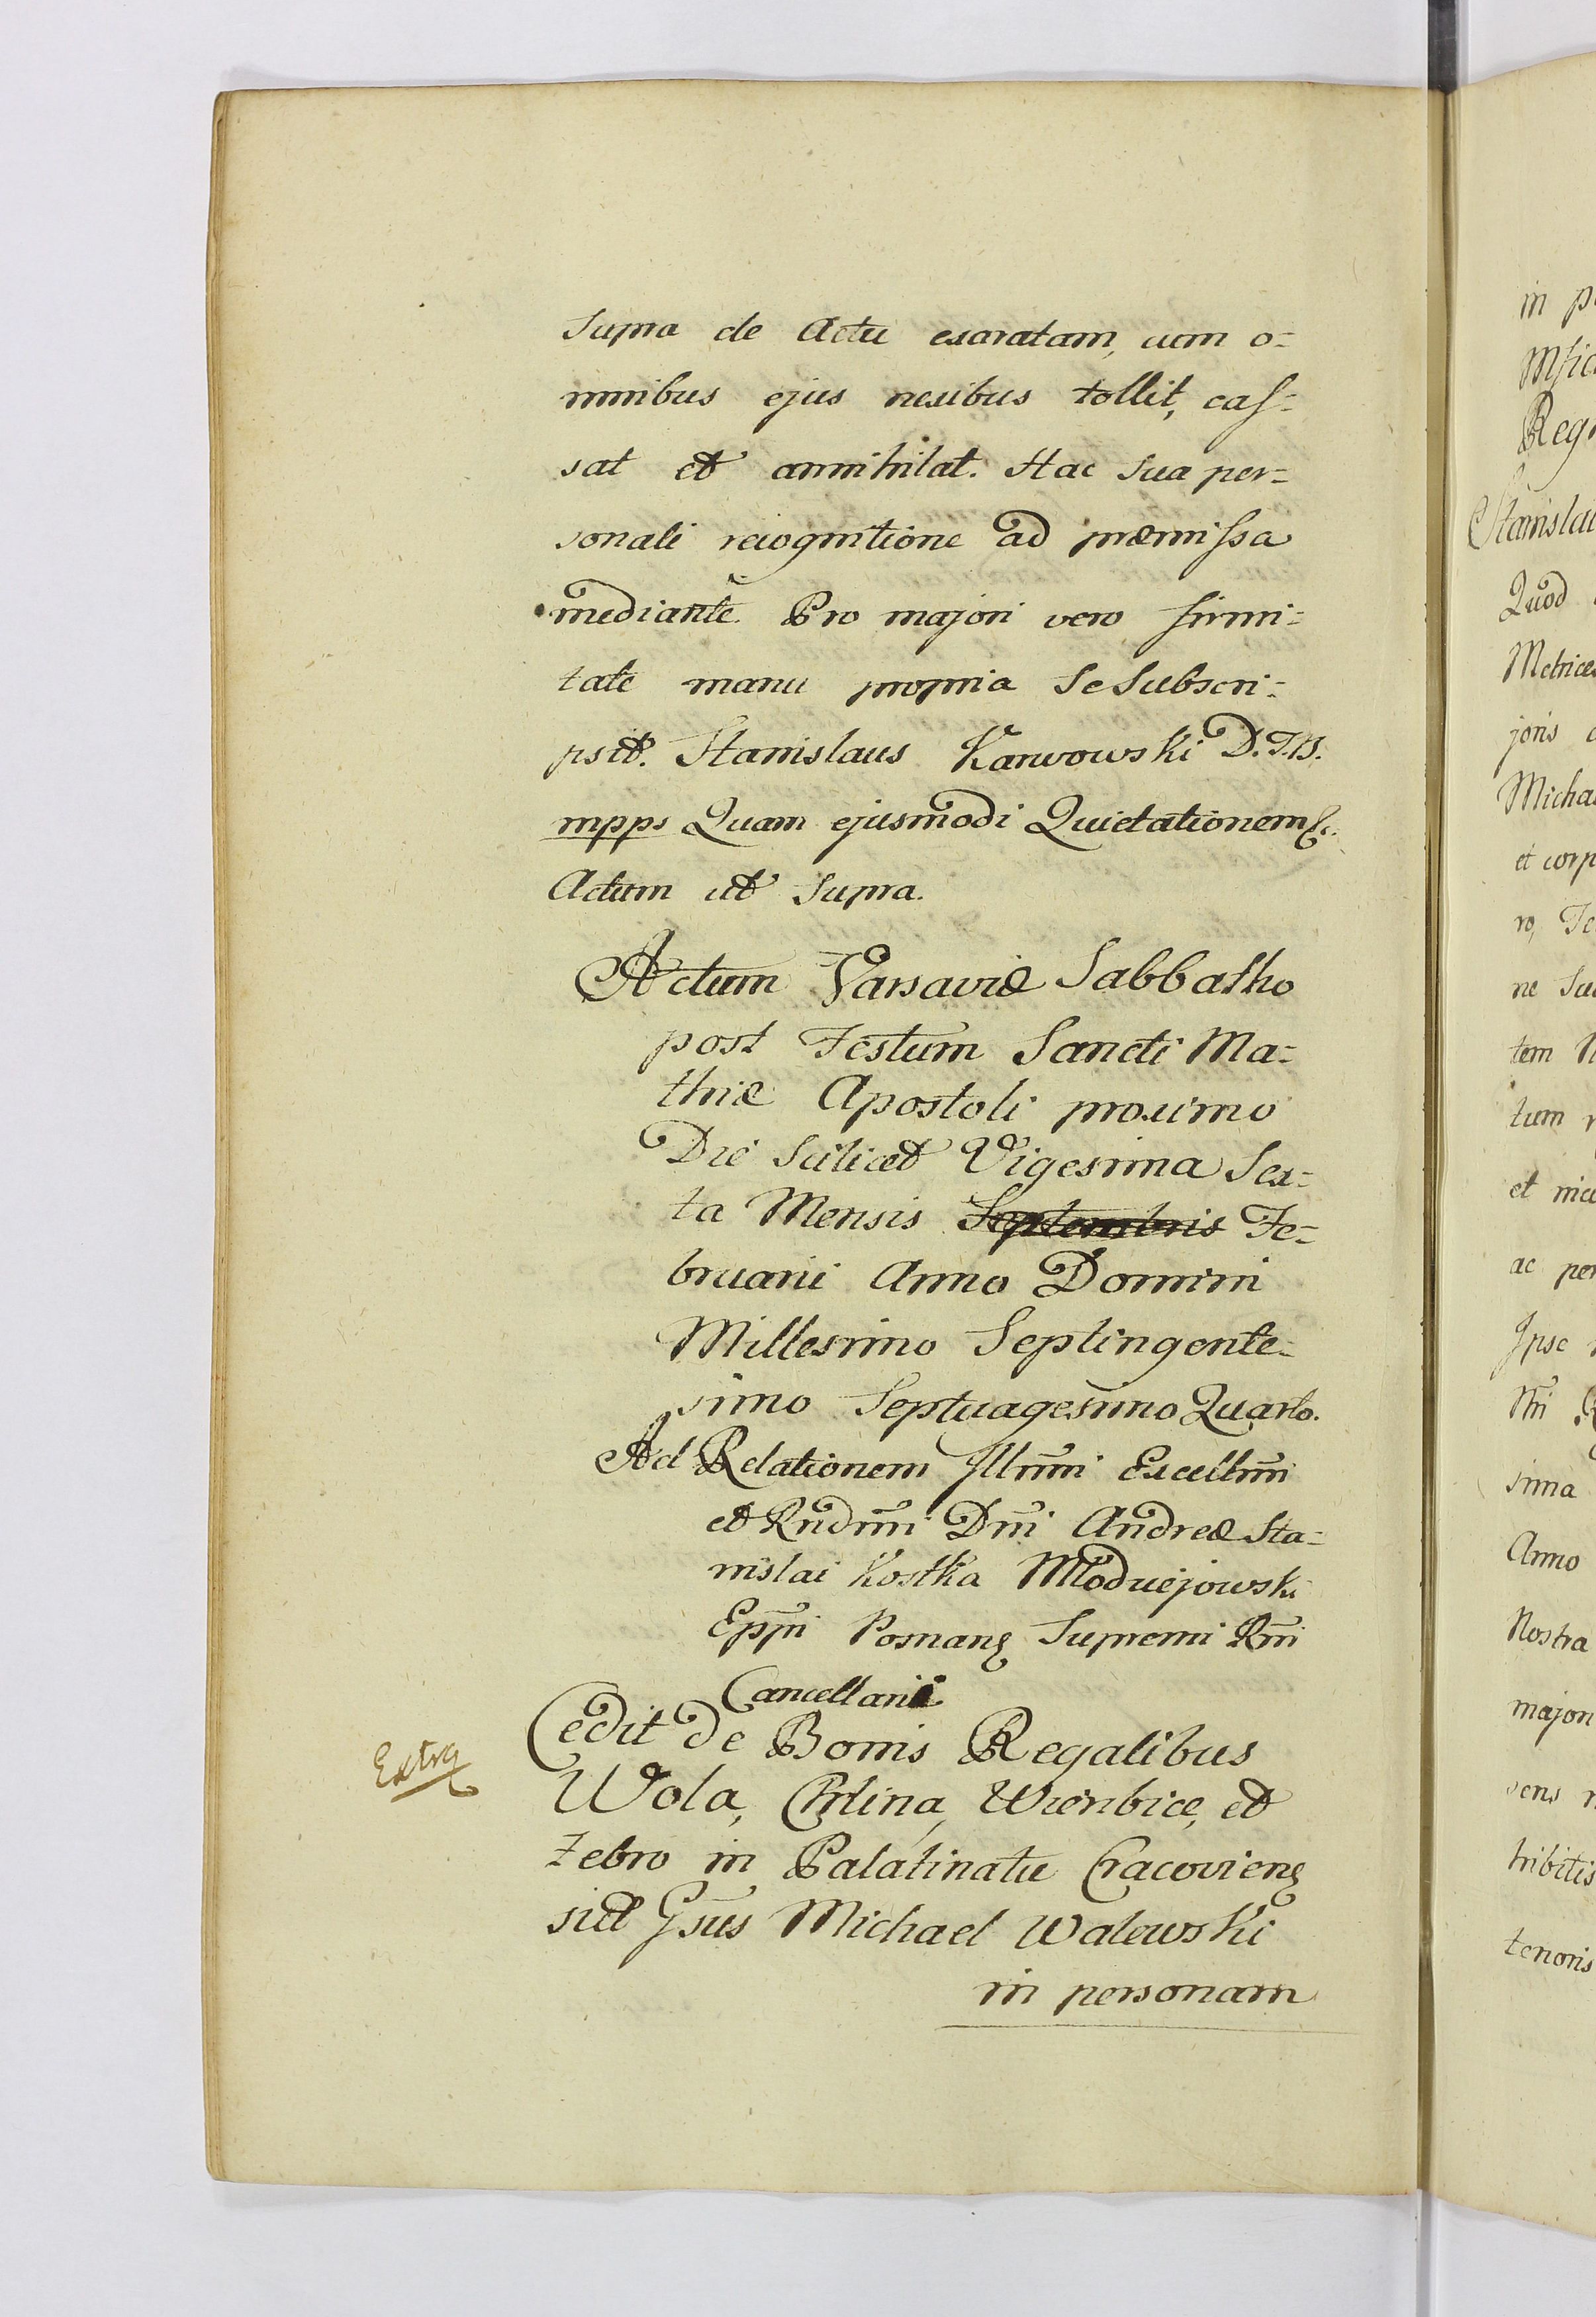 supra de Actu exaratam, cum o=
mnibus ejus nexibus tollit, cas=
sat et annihilat. Hac sua per=
sonali recognitione ad præmissa
mediante. Pro majori vero firmi=
tate manu propria se subscri=
psit. Stanislaus Karwowski D.T.B.
mpps Quam ejusmodi Quietationem &.
Actum ut supra.
Actum Varsaviæ Sabbatho
post Festum Sancti Ma=
thiæ Apostoli proximo
Die scilicet Vigesima Sex=
ta Mensis Septembris Fe=
bruarii Anno Domini
Millesimo Septingente=
simo Septuagesimo Quarto.
Ad Relationem Illrmi Excellmi
et Rndmi Dni Andreæ Sta=
nislai Kostka Młodziejowski
Eppi Posnang Supremi Rni
Cancellarii
Extrq
Cedit de Bonis Regalibus
Wola, Chlina, Wierzbice, et
Zebro in Palatinatu Cracovieng
sit Gsus Michael Walewski
in personam
in p
Msic
Reg
Stanislau
Quod
Metrices
joris
Micha
et corp
ro, Te
ne Su
tem N
tum
et
ac per
Ipse
Nri
sima
Anno
Nostra
majori
sens
tribitis
tenoris